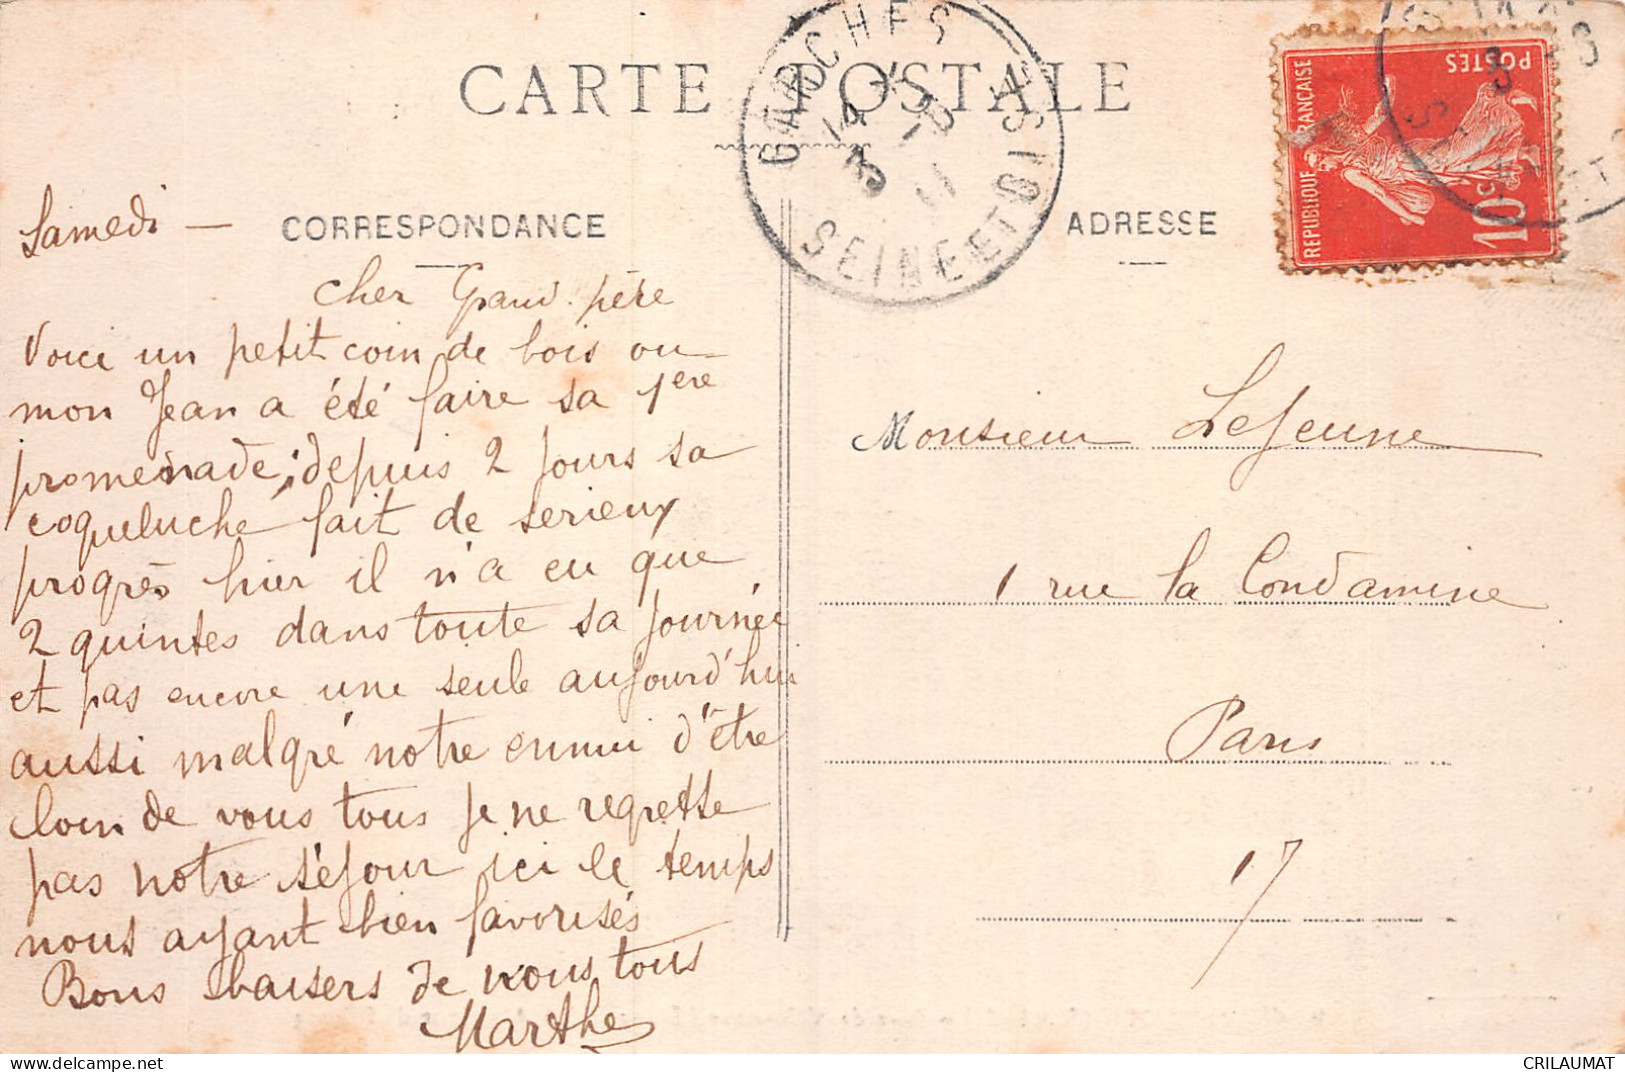 CARTE POSTALE
GARCHES
14 15
3 - 8
11
SEINE ET OISE
REPUBLIQUE FRANÇAISE
POSTES
10c
CORRESPONDANCE
ADRESSE
Samedi —
Cher Grand-père
Voici un petit coin de bois ou
mon Jean a été faire sa 1ère
promenade ; depuis 2 jours sa
coqueluche fait de serieux
progrès hier il n'a eu que
2 quintes dans toute sa journée
et pas encore une seule aujourd'hui
aussi malgré notre ennui d'être
loin de vous tous je ne regrette
pas notre séjour ici le temps
nous ayant bien favorisés
Bons baisers de nous tous
Marthe
Monsieur LeJeune
1 rue la Condamine
Paris
17
CRILAUMAT